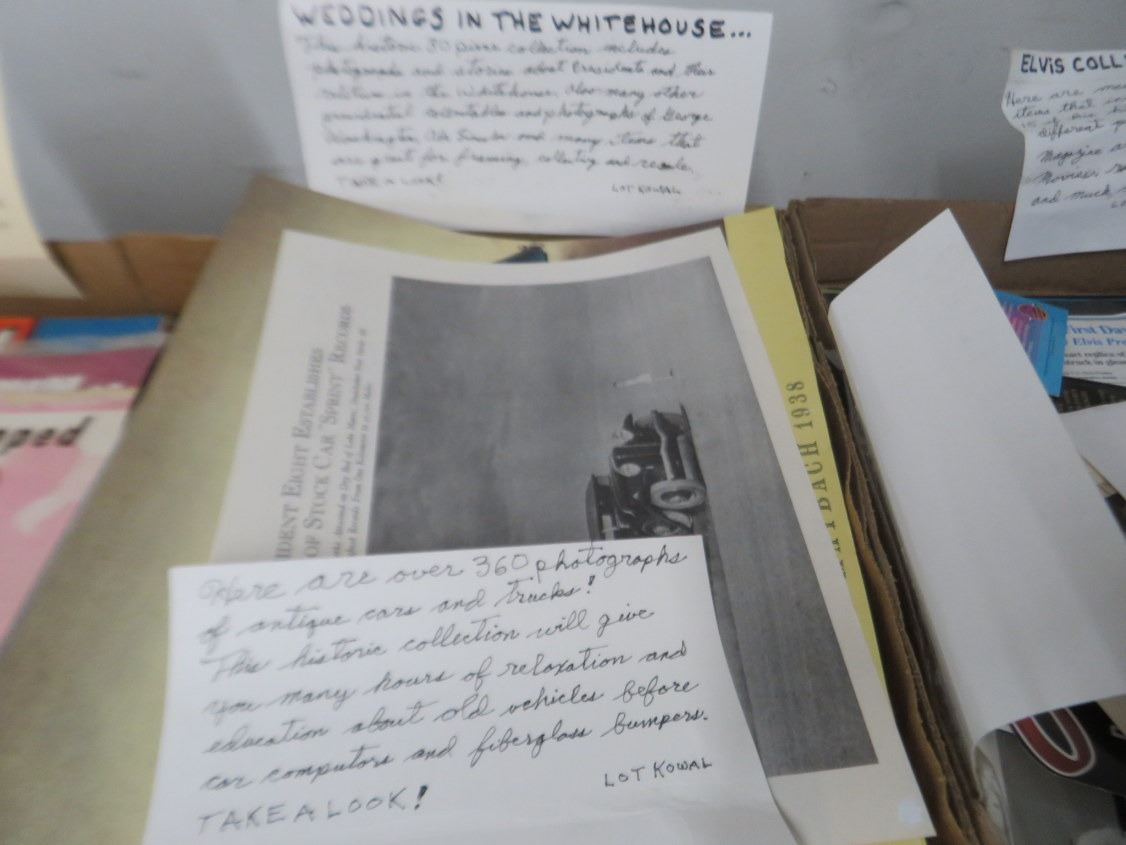 WEDDINGS IN THE WHITEHOUSE...
This historic 30 piece collection includes
photographs and stories about Presidents and their
relatives in the Whitehouse. Also many other
presidential and photographs of George
Washington, Abe Lincoln and many items that
are great for framing, collecting and resale.
TAKE A LOOK!
LOT KOWAL
ELVIS COLL
Here are
items that
different
Magazine
Movies
and much
First Da
Elvis Pre
IDENT EIGHT ESTABLISHES
OF STOCK CAR "SPRINT" RECORDS
BACH 1938
pped
Here are over 360 photographs
of antique cars and trucks!
This historic collection will give
you many hours of relaxation and
education about old vehicles before
car computors and fiberglass bumpers.
LOT KOWAL
TAKE A LOOK!